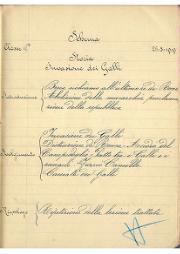 Schema
Classe 4ª 26-3-1919
Storia
Invasione dei Galli
Introduzione
Breve richiamo all'ultimo re di Roma
Abolizione della monarchia proclama
zione della repubblica
Invasione dei Galli
Distruzione di Roma. Assedio del
Campidoglio. Lotta tra i Galli e i
romani. Furio Camillo
Cacciata dei Galli
Ripetizione della lezione trattata